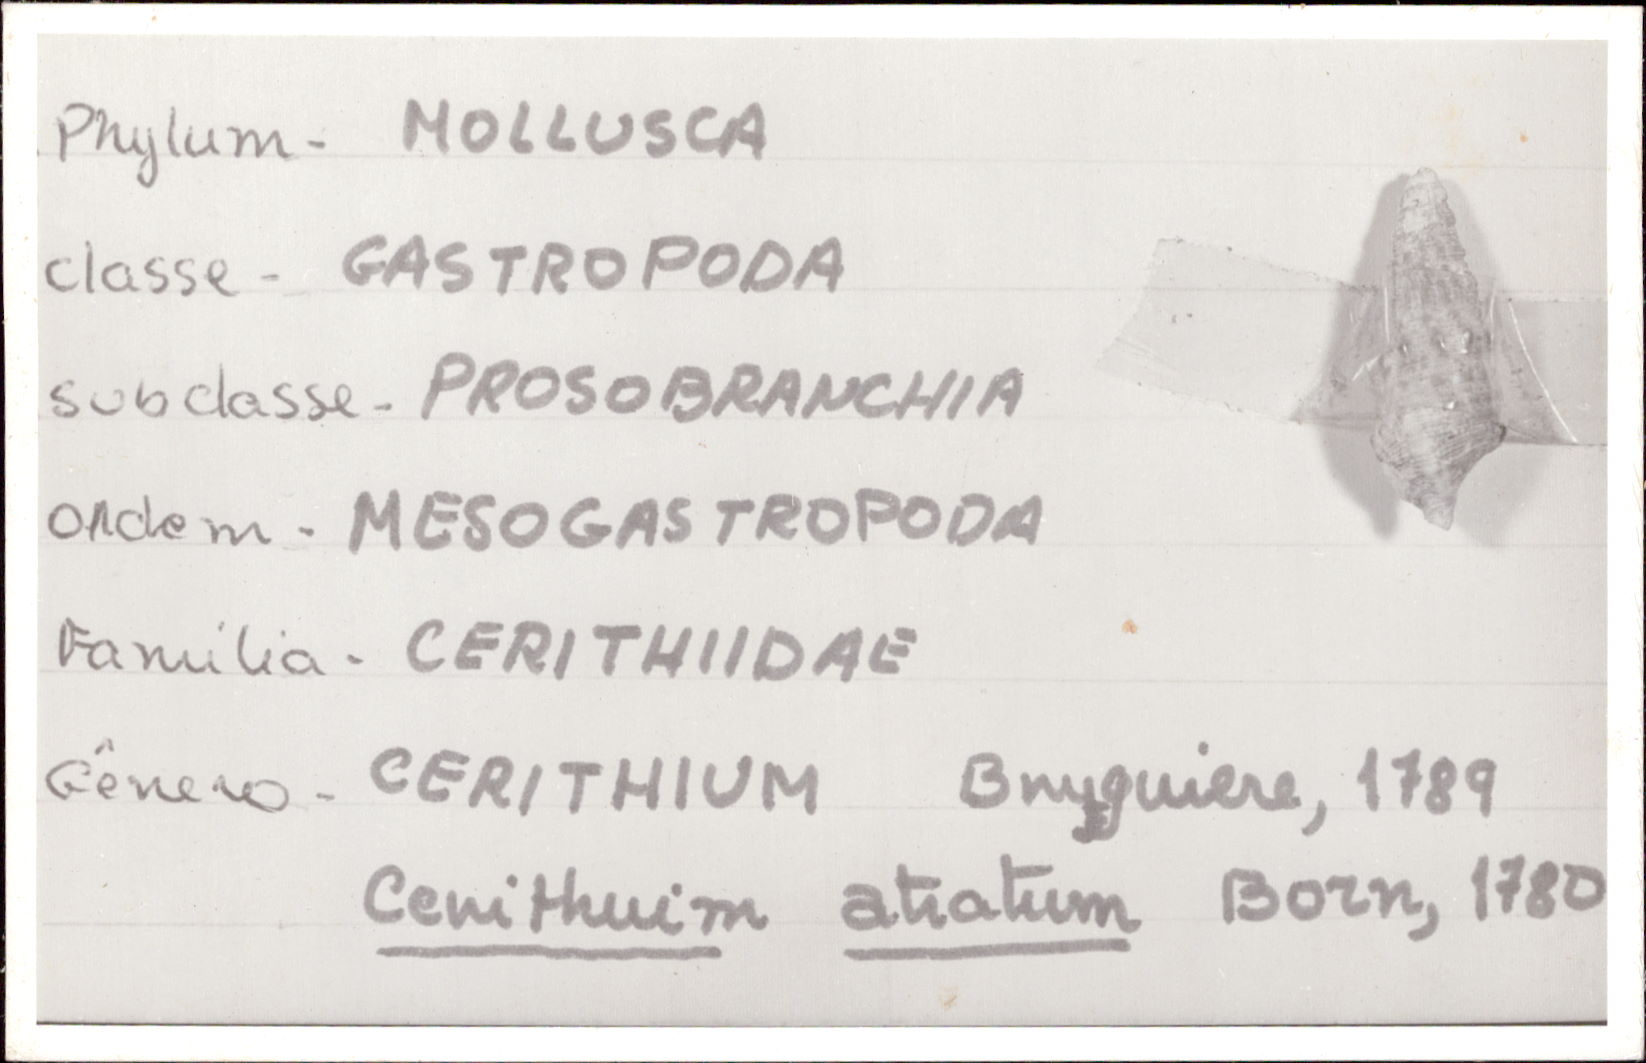 Phylum - MOLLUSCA
classe - GASTROPODA
subclasse - PROSOBRANCHIA
ordem - MESOGASTROPODA
Família - CERITHIIDAE
Gênero - CERITHIUM Bruguiere, 1789
Cerithium atratum Born, 1780